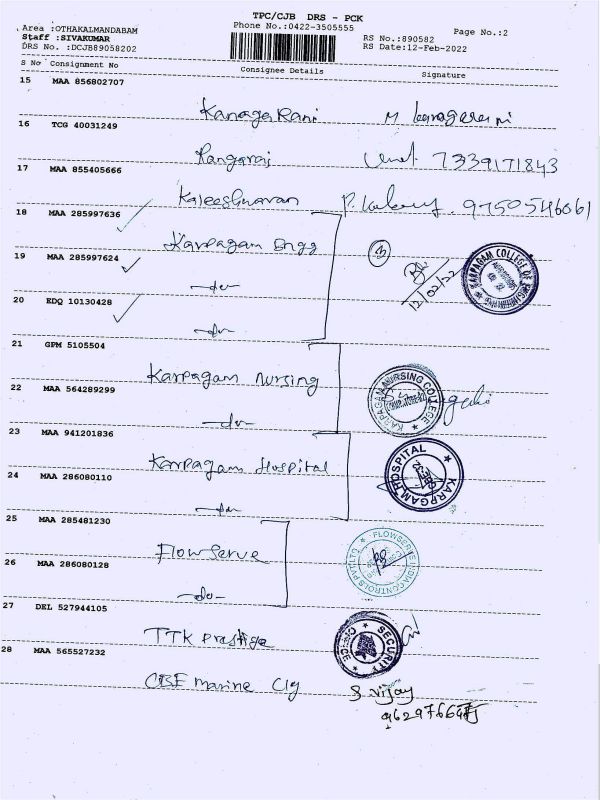 TPC/CJB DRS - PCK
Area :OTHAKALMANDABAM
Phone No.:0422-3505555
Page No.:2
Staff :SIVAKUMAR
RS No.:890582
DRS No. :DCJB89058202
RS Date:12-Feb-2022
S No Consignment No Consignee Details Signature
15 MAA 856802707
Kanaga Rani M
16 TCG 40031249
Rangaraj 7339171843
17 MAA 855405666
Kaleeshwaran P. 9750546061
18 MAA 285997636
Karpagam Engg
3
12/02/22
KARPAGAM COLLEGE OF ENGINEERING
19 MAA 285997624
-do-
20 EDQ 10130428
-do-
21 GPM 5105504
Karpagam Nursing
KARPAGAM NURSING COLLEGE
22 MAA 564289299
-do-
23 MAA 941201836
Karpagam Hospital
KARPAGAM HOSPITAL
24 MAA 286080110
-do-
25 MAA 285481230
Flowserve
FLOWSERVE INDIA CONTROLS PVT LTD
26 MAA 286080128
-do-
27 DEL 527944105
TTK Prestige
SECURITY OFFICE
28 MAA 565527232
CBE Marine Clg S vijay